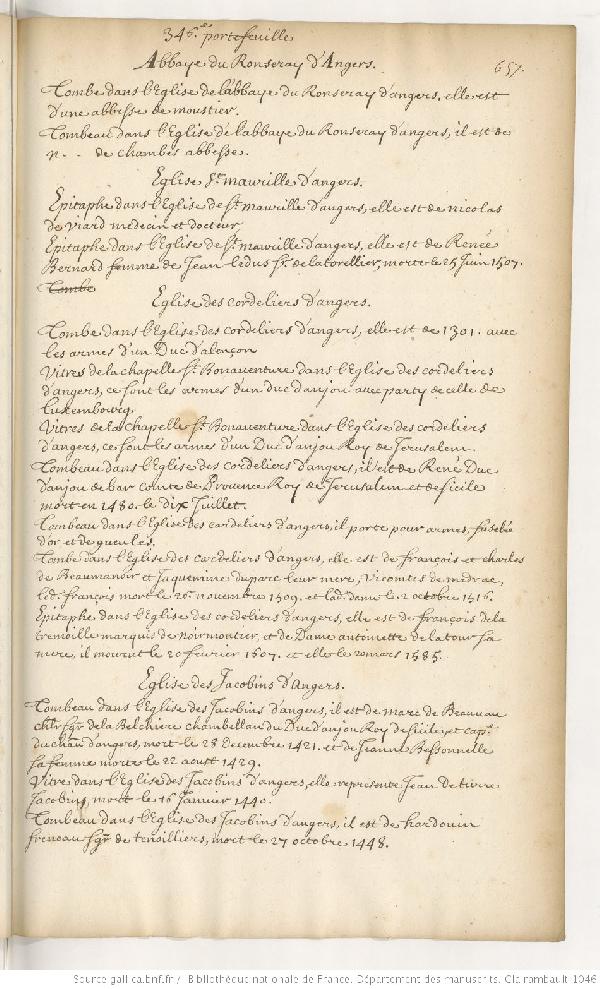 346.e portefeuille
Abbaye du Ronseray d'Angers.
657.
Tombe dans l'Eglise de l'abbaye du Ronseray d'angers, elle est
d'une abbesse de moustier.
Tombeau dans l'Eglise de l'abbaye du Ronseray d'angers, il est de
n. . de chambes abbesse.
Eglise St. maurille d'angers.
Epitaphe dans l'Eglise de St. maurille d'angers, elle est de nicolas
de viard medecin et docteur
Epitaphe dans l'Eglise de St. maurille d'angers, elle est de Renée
Bernard femme de Jean ledus Sr. de la torellier, morte le 25 Juin 1507.
Tombe
Eglise des cordeliers d'angers.
Tombe dans l'Eglise des cordeliers d'angers, elle est de 1301. avec
les armes d'un Duc d'alençon
Vitres de la chapelle St. Bonaventure dans l'Eglise des cordeliers
d'angers, ce sont les armes d'un duc d'anjou avec party de celle de
Luxembourg.
Vitres de la chapelle St. Bonaventure dans l'Eglise des cordeliers
d'angers, ce sont les armes d'un Duc d'anjou Roy de Jerusalem.
Tombeau dans l'Eglise des cordeliers d'angers, il est de René Duc
d'anjou de bar comte de Provence Roy de Jerusalem et de sicile
mort en 1480. le dix Juillet.
Tombeau dans l'Eglise des cordeliers d'angers, il porte pour armes, fuselé
d'or et de gueules.
Tombe dans l'Eglise des cordeliers d'angers, elle est de françois et charles
de Beaumanoir et Jaquemine duparc leur mere, Vicomtes de
led. françois mort le 26 novembre 1509. et lad. dame le 2 octobre 1516.
Epitaphe dans l'Eglise des cordeliers d'angers, elle est de françois de la
tremoille marquis de noirmontier, et de Dame antoinette de la tour sa
mere, il mourut le 20 fevrier 1607. et elle le 20 mars 1585.
Eglise des Jacobins d'Angers.
Tombeau dans l'Eglise des Jacobins d'angers, il est de marc de Beauvau
chlr sgr de la Belchiere chambellan du Duc d'anjou Roy de sicile et cap.
du chau d'angers, mort le 28 Decembre 1421. et de Jeanne Bessonnelle
sa femme morte le 22 aoust 1429.
Vitre dans l'Eglise des Jacobins d'angers, elle represente Jean de
Jacobins, mort le 16 Janvier 1440.
Tombeau dans l'Eglise des Jacobins d'angers, il est de hardouin
freneau sgr de tensilliers, mort le 27 octobre 1448.
Source gallica.bnf.fr / Bibliothèque nationale de France. Département des manuscrits. Clairambault 1046